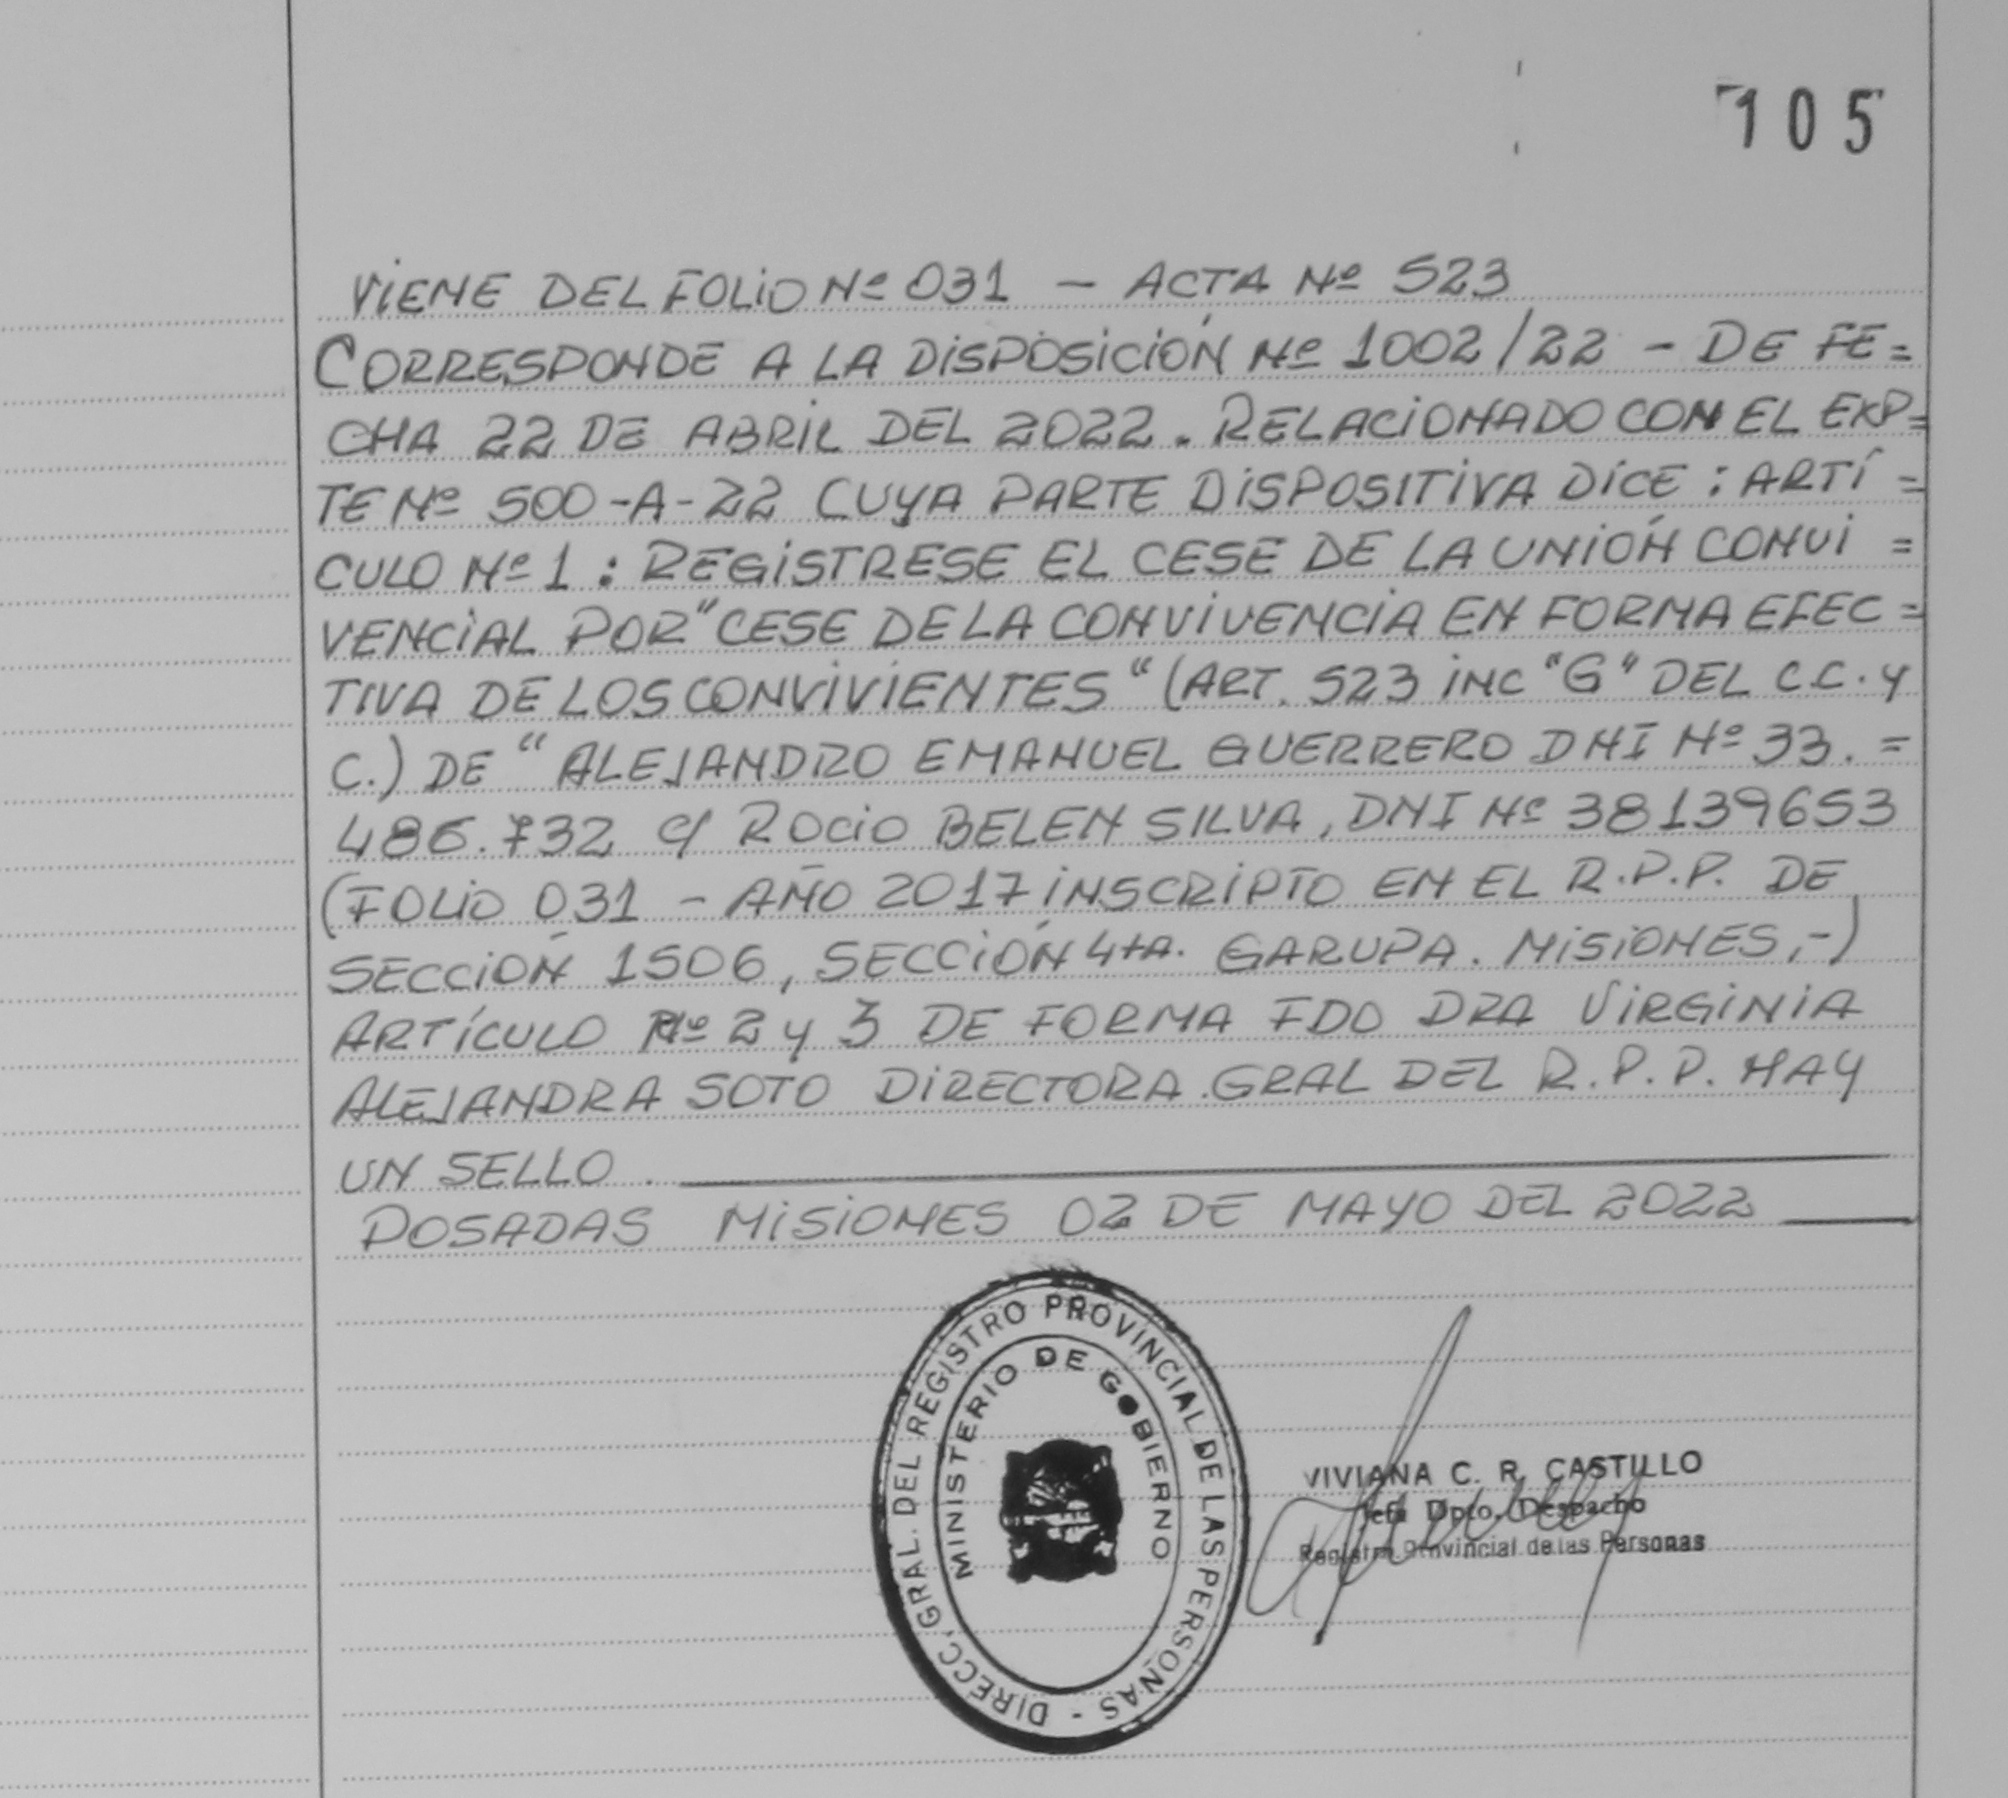 105
VIENE DEL FOLIO Nº 031 - ACTA Nº 523
CORRESPONDE A LA DISPOSICIÓN Nº 1002/22 - DE FE=
CHA 22 DE ABRIL DEL 2022. RELACIONADO CON EL EXP=
TE Nº 500-A-22 CUYA PARTE DISPOSITIVA DICE: ARTÍ=
CULO Nº 1: REGISTRESE EL CESE DE LA UNIÓN CONVI=
VENCIAL POR "CESE DE LA CONVIVENCIA EN FORMA EFEC=
TIVA DE LOS CONVIVIENTES" (ART. 523 INC "G" DEL C.C. Y
C.) DE "ALEJANDRO EMANUEL GUERRERO DNI Nº 33.=
486.732 C/ ROCIO BELEN SILVA, DNI Nº 38139653
(FOLIO 031 - AÑO 2017 INSCRIPTO EN EL R.P.P. DE
SECCIÓN 1506, SECCIÓN 4ta. GARUPA. MISIONES.-)
ARTÍCULO Nº 2 Y 3 DE FORMA FDO DRA VIRGINIA
ALEJANDRA SOTO DIRECTORA GRAL DEL R.P.P. HAY
UN SELLO.
POSADAS MISIONES 02 DE MAYO DEL 2022
DIRECC. GRAL. DEL REGISTRO PROVINCIAL DE LAS PERSONAS -
MINISTERIO DE GOBIERNO
VIVIANA C. R. CASTILLO
Jefa Dpto. Despacho
Registro Provincial de las Personas